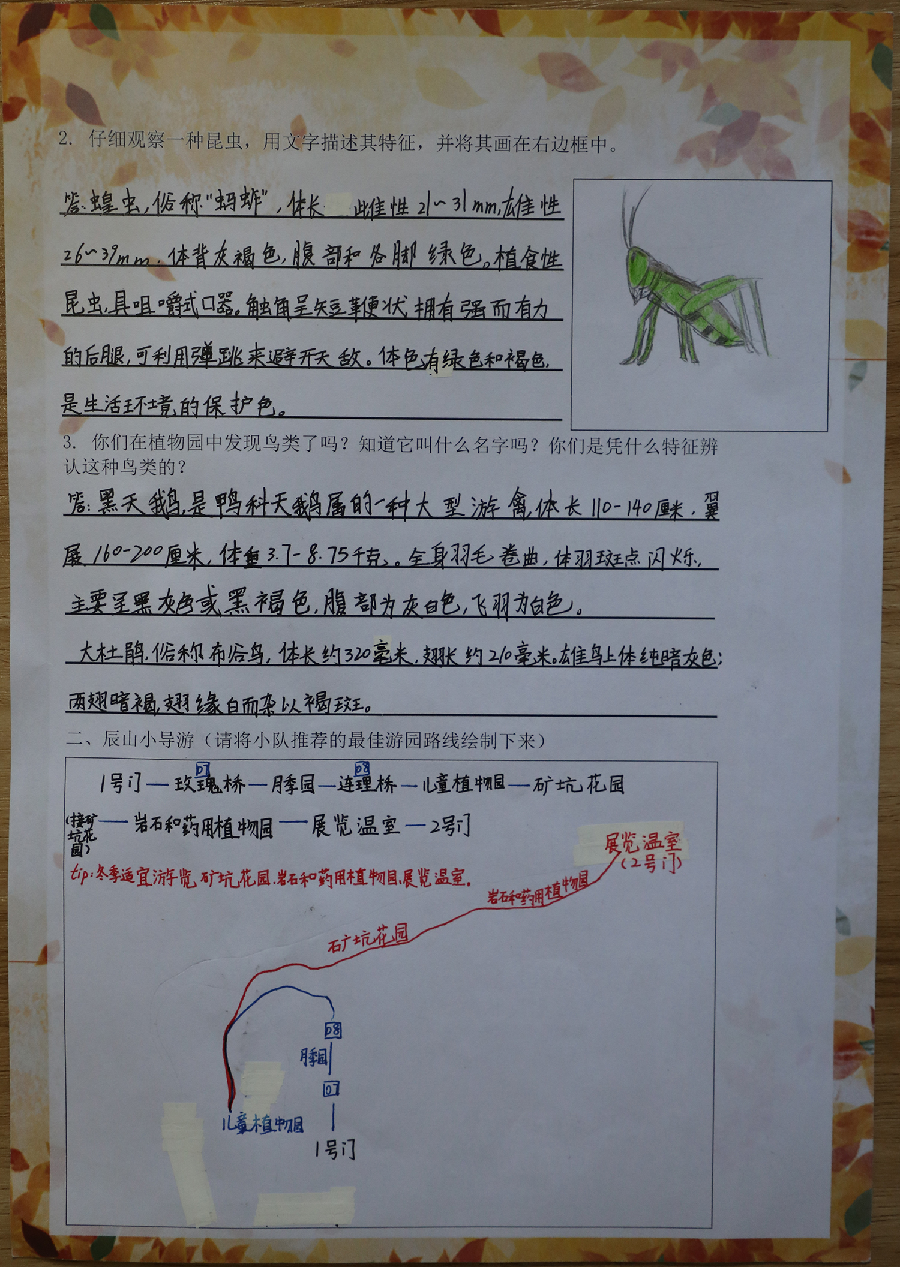 2. 仔细观察一种昆虫，用文字描述其特征，并将其画在右边框中。
答:蝗虫,俗称"蚂蚱",体长 雌性21~31mm,雄性
26~39mm.体背灰褐色,腹部和各脚绿色。植食性
昆虫,具咀嚼式口器。触角呈短鞭状 拥有强而有力
的后腿,可利用弹跳来避开天敌。体色有绿色和褐色,
是生活环境的保护色。
3. 你们在植物园中发现鸟类了吗？知道它叫什么名字吗？你们是凭什么特征辨
认这种鸟类的？
答:黑天鹅,是鸭科天鹅属的一种大型游禽,体长110-140厘米,翼
展160-200厘米,体重3.7-8.75千克。全身羽毛卷曲,体羽斑点闪烁,
主要呈黑灰色或黑褐色,腹部为灰白色,飞羽为白色。
大杜鹃,俗称布谷鸟,体长约320毫米,翅长约210毫米。雄鸟上体纯暗灰色;
两翅暗褐,翅缘白而杂以褐斑。
二、辰山小导游（请将小队推荐的最佳游园路线绘制下来）
07 08
1号门—玫瑰桥—月季园—连理桥—儿童植物园—矿坑花园
(接矿坑花园)—岩石和药用植物园—展览温室—2号门
tip:冬季适宜游览矿坑花园、岩石和药用植物园、展览温室。
展览温室
(2号门)
岩石和药用植物园
矿坑花园
08
月季园
07
儿童植物园
1号门